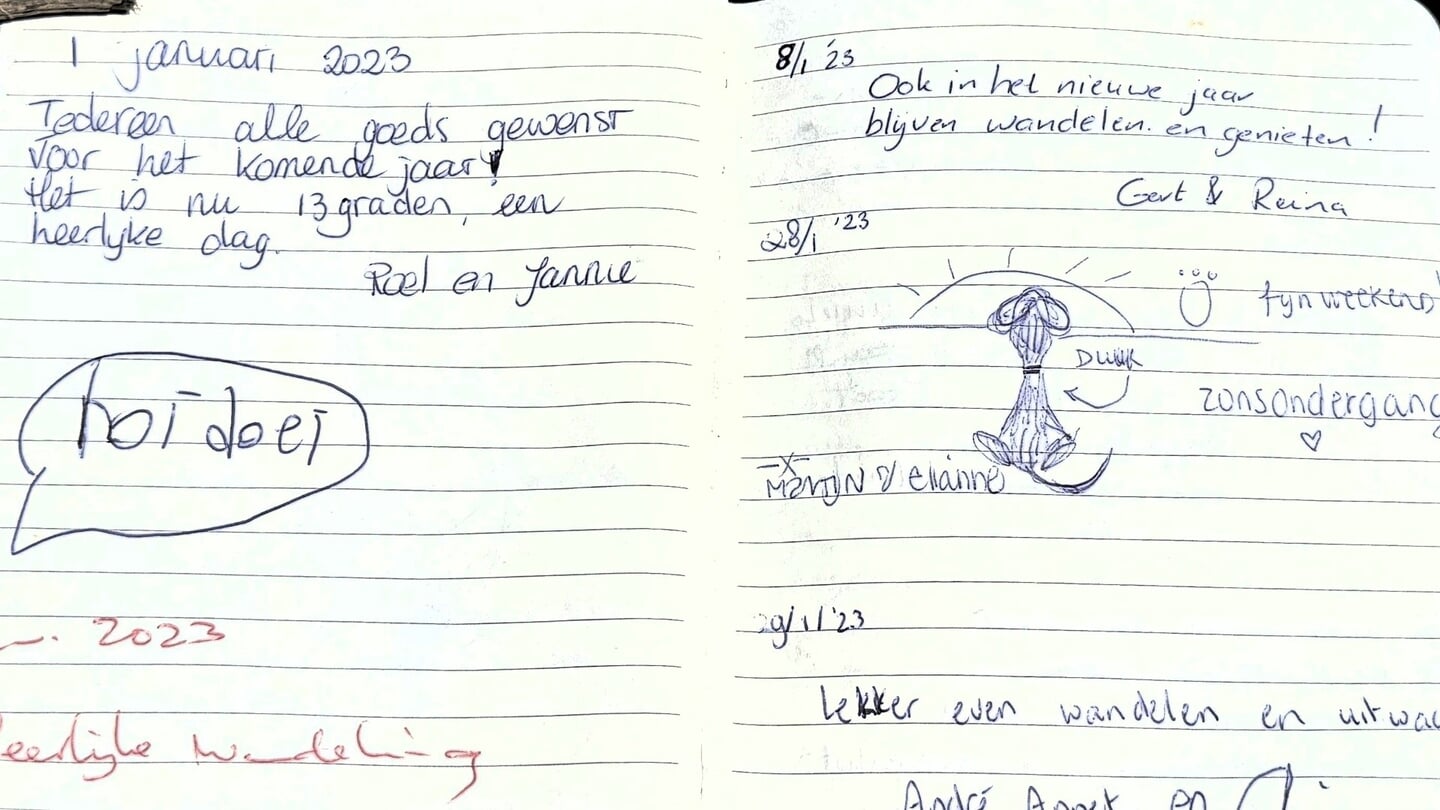 1 januari 2023
Iedereen alle goeds gewenst
voor het komende jaar!
Het is nu 13 graden, een
heerlijke dag.
Roel en Jannie
hoi doei
2023
eerlijke wandeling
8/1 '23
Ook in het nieuwe jaar
blijven wandelen en genieten!
Gert & Reina
28/1 '23
fijn weekend!
zonsondergang
Martijn & elianne
29/1/'23
Lekker even wandelen en uitwaa
André Annet en